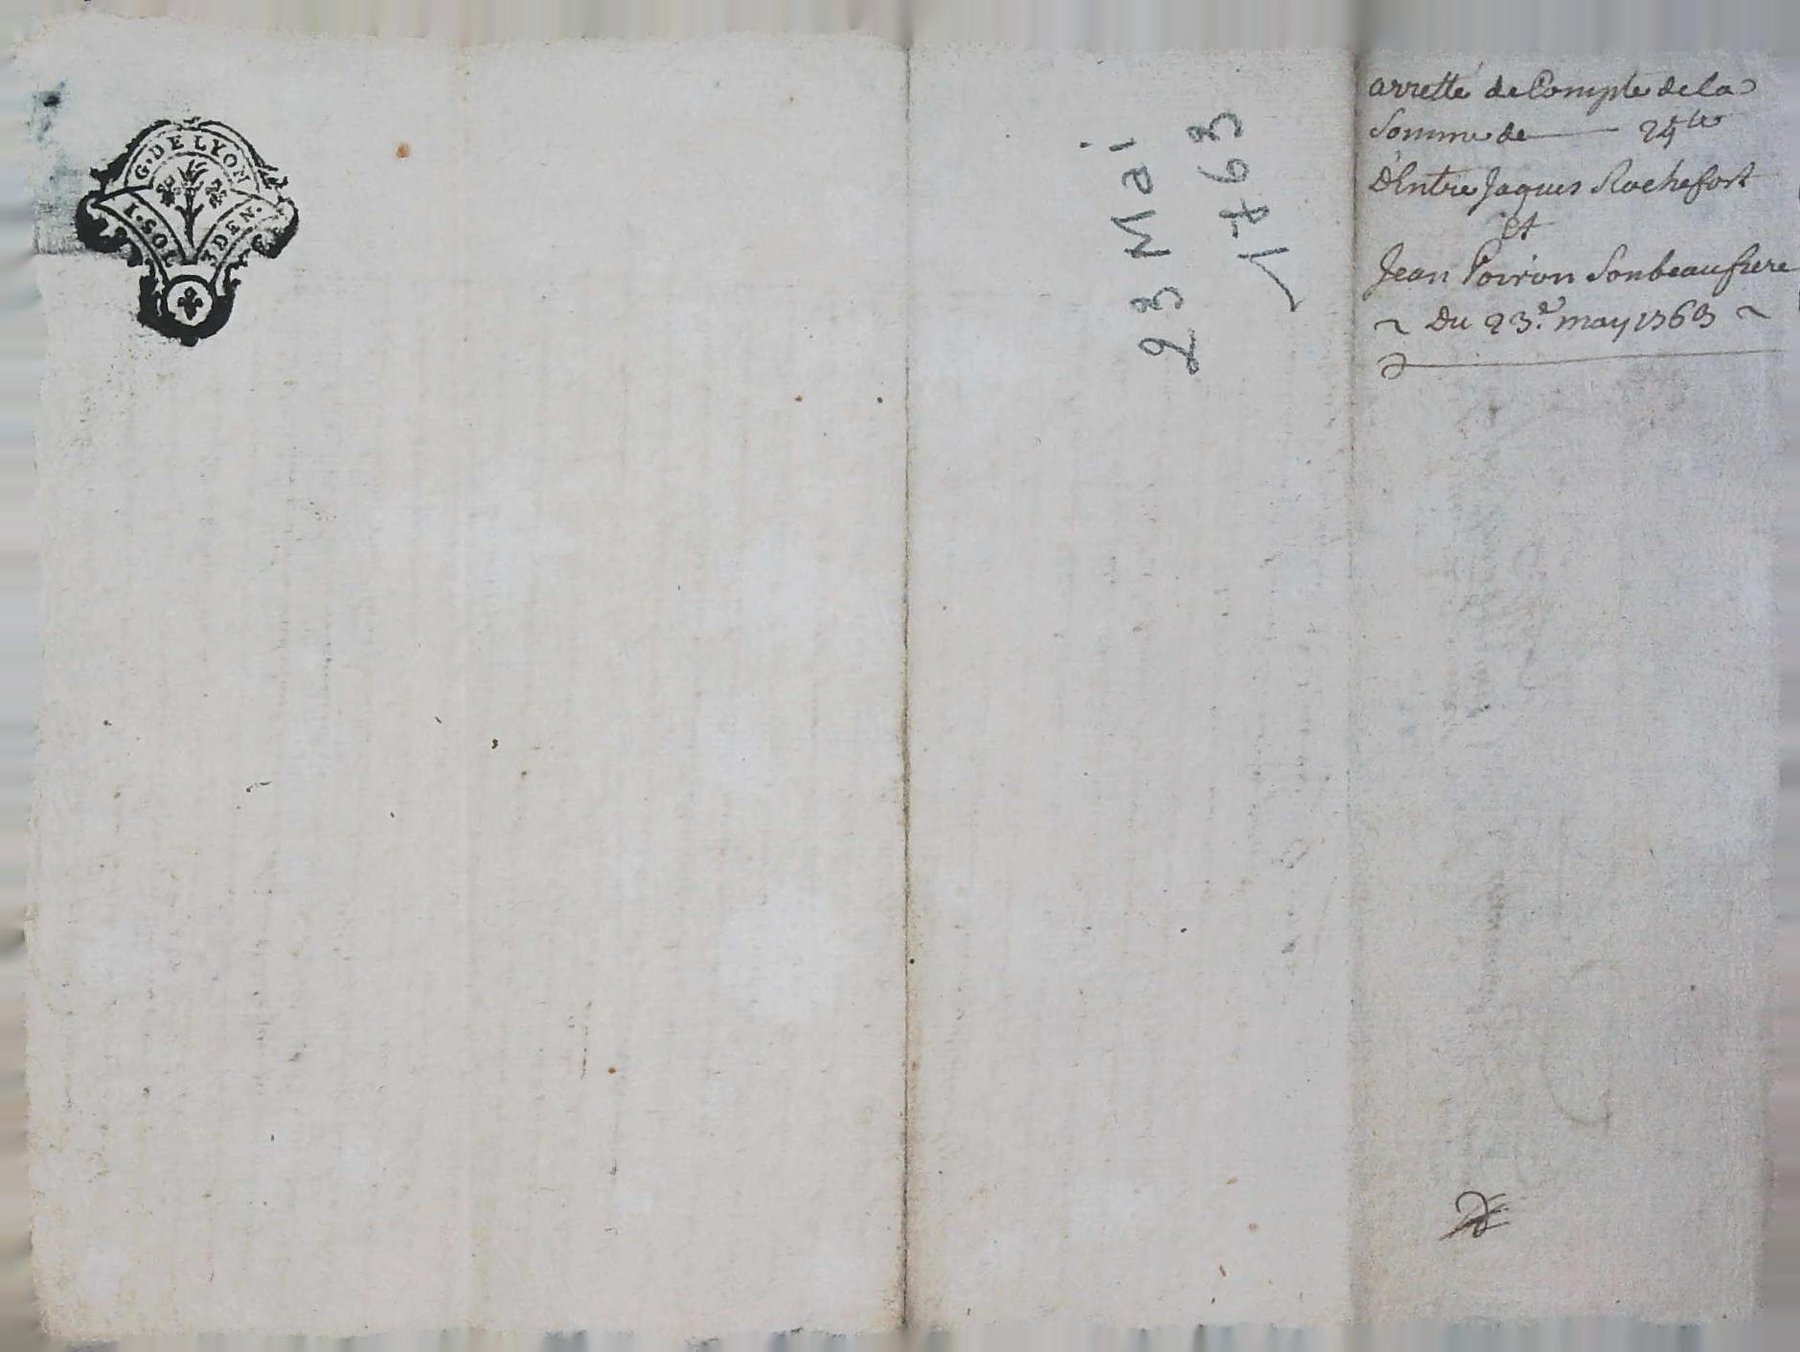 G. DE LYON
1. SOL 3 DEN.
23 Mai
1763
arretté de Compte de la
Somme de — 24 ᵗᵗ
d'Entre Jaques Rochefort
et
Jean Poiron Son beaufrere
~ Du 23.ᵉ may 1763 ~